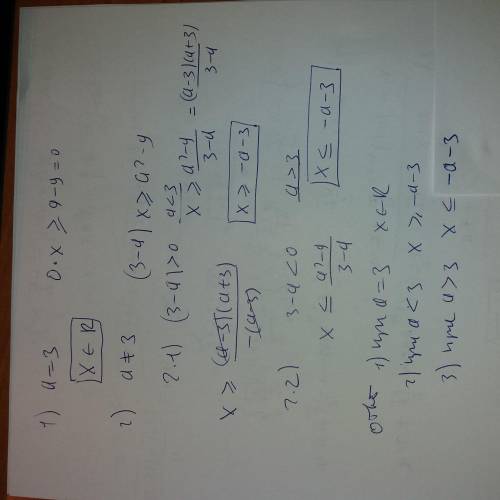 1) a = 3 0·x ≥ 9-9=0
x ∈ R
2) a ≠ 3 (3-a)x ≥ a²-9
2.1) (3-a)>0 a<3
x ≥ a²-9/3-a = (a-3)(a+3)/3-a
x ≥ (a-3)(a+3)/-(a-3) x ≥ -a-3
2.2) 3-a<0 a>3
x ≤ a²-9/3-a x ≤ -a-3
Ответ 1) при a=3 x∈R
2) при a<3 x ≥ -a-3
3) при a>3 x ≤ -a-3